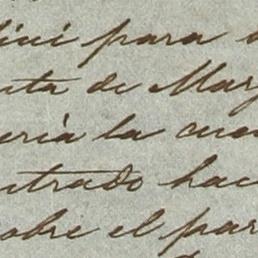 para
ta de Mar
ería la cuen
ntrado hac
sobre el par